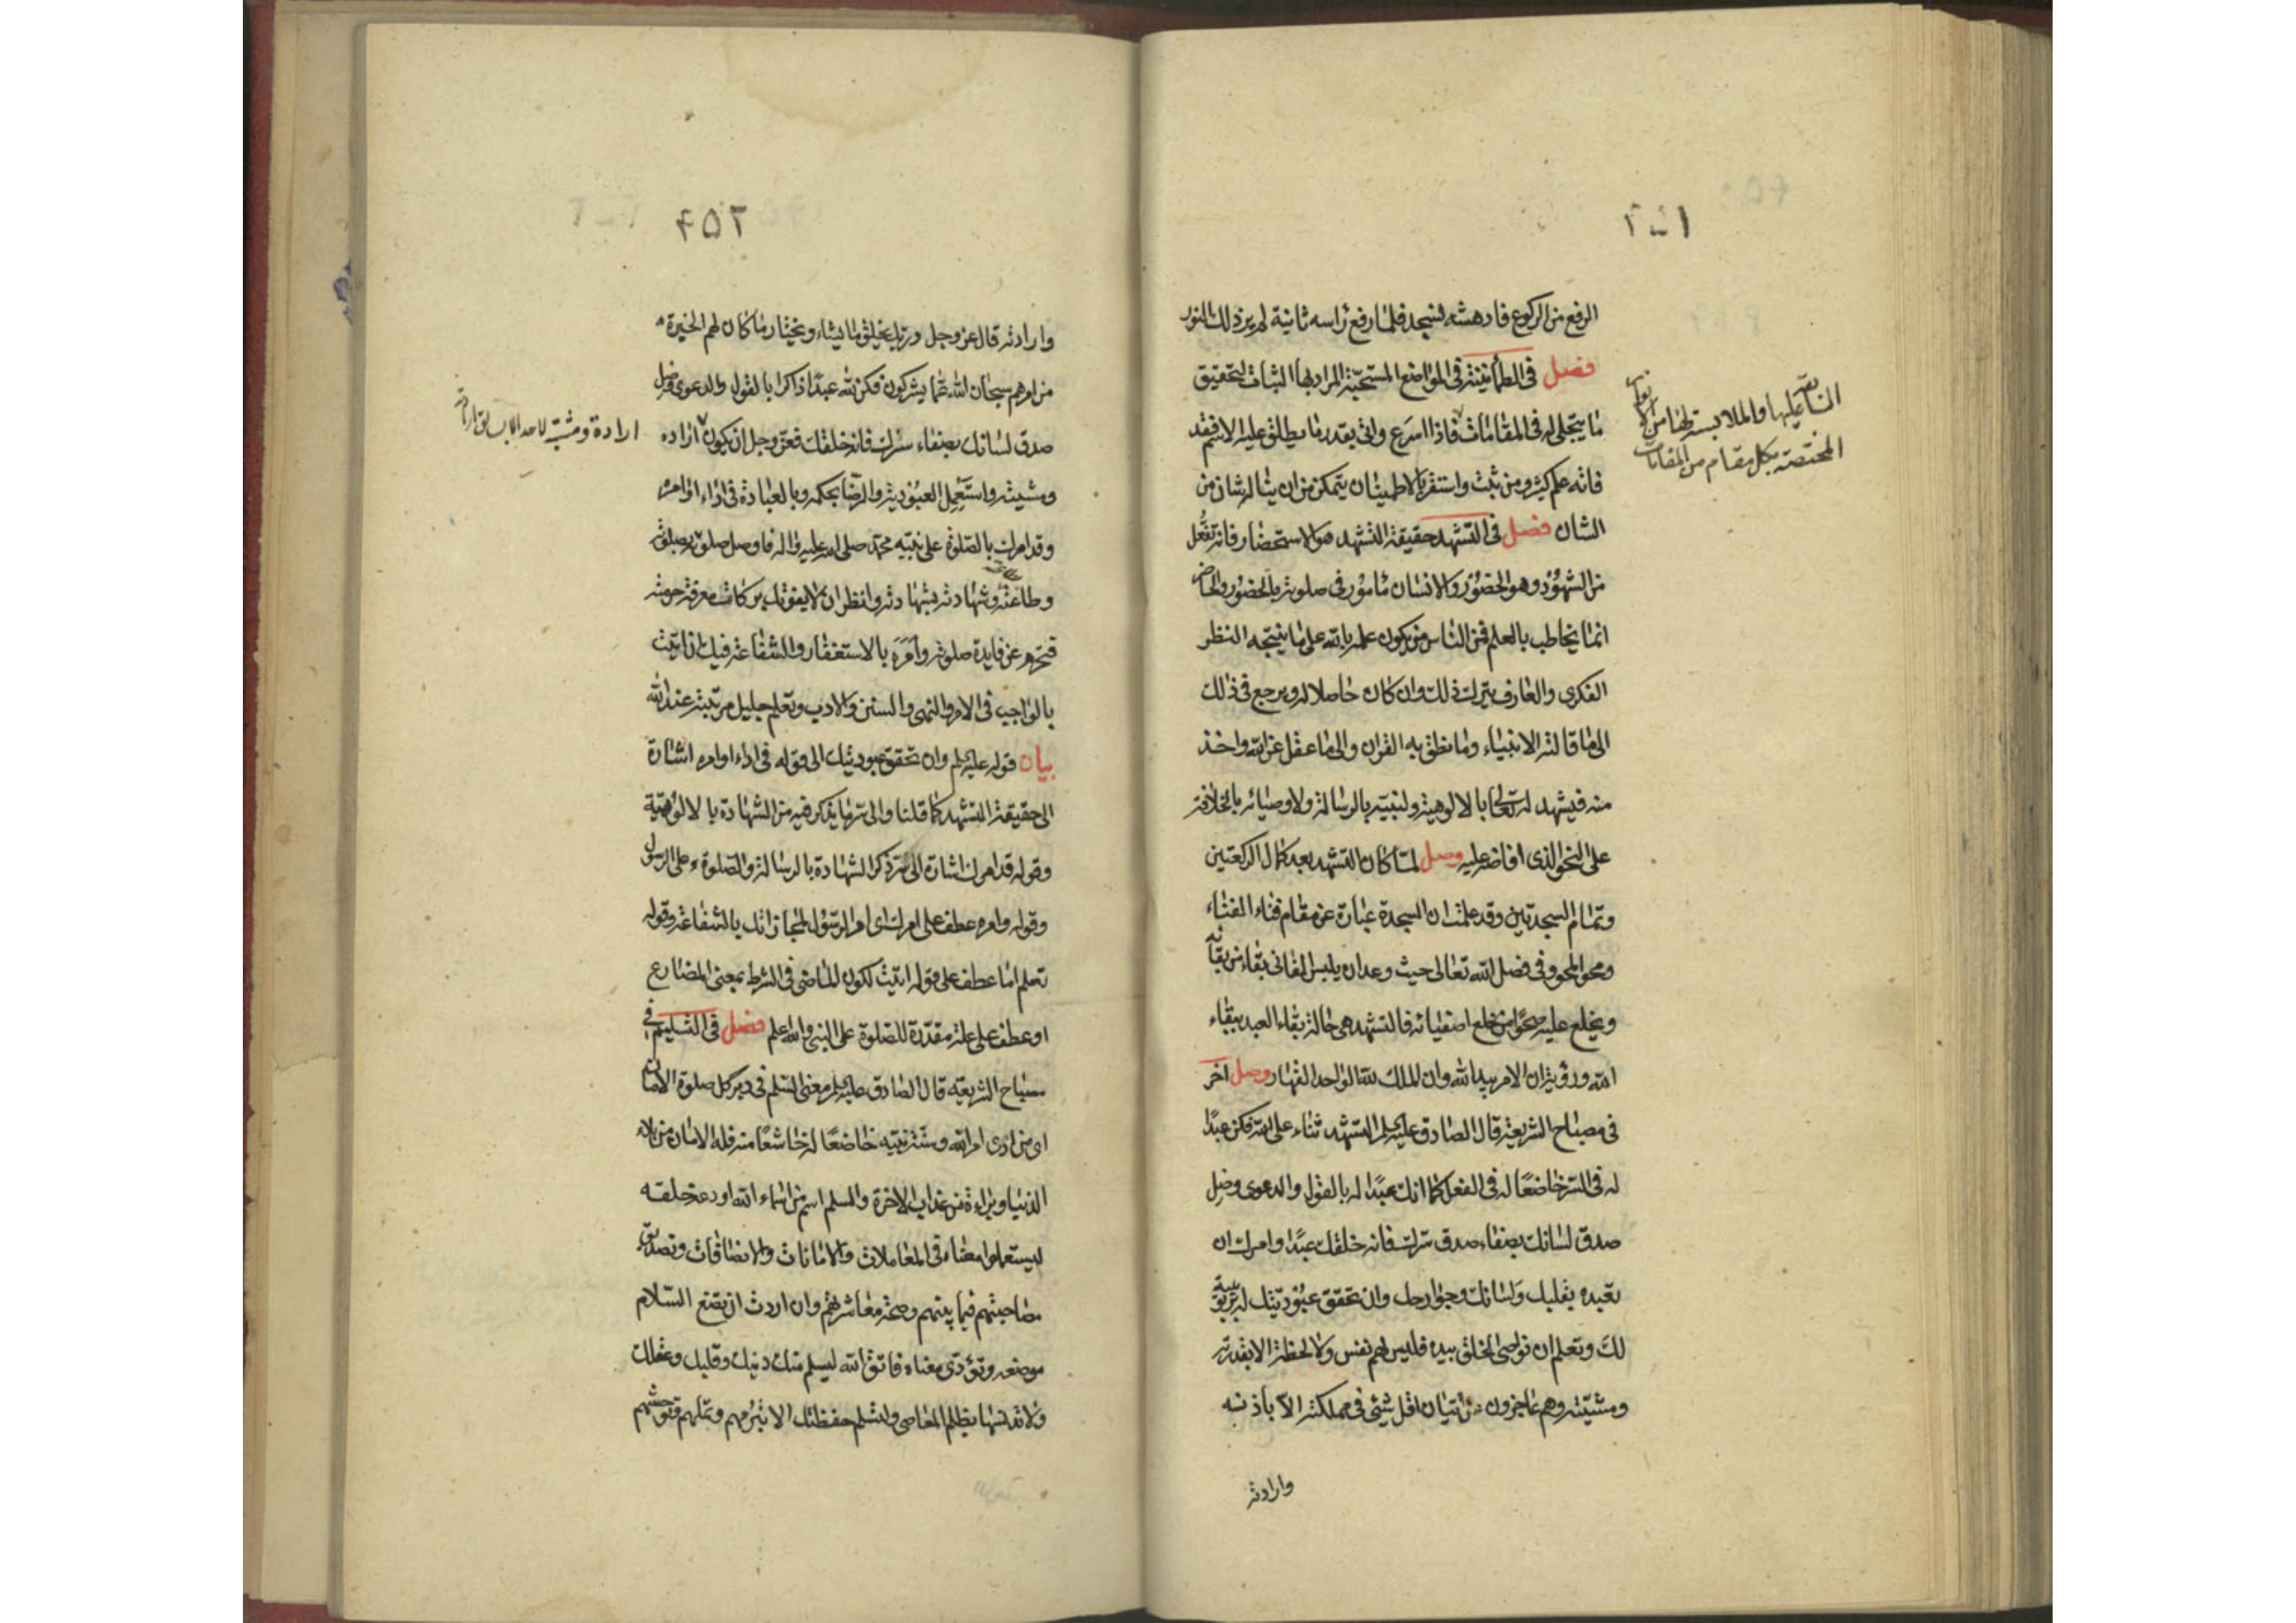 الرفع من الركوع فادهشه فسجد فلما رفع راسه ثانية لم يزد ذلك النور
فصل فى الطمأنينة فى المواضع المستحبة المراد بها الثبات لتحقيق
ما يتجلى له فى المقامات فاذا اسرع وانى بقدر ما يطلق عليه الاسم فقد
فاته علم كثير ومن ثبت واستقر بالاطمينان يتمكن من ان يناله شان من
الشان فصل فى التشهد حقيقة التشهد هو الاستحضار فانه تفعّل
من الشهود وهو الحضور والانسان مأمور فى صلوته بالحضور والحاضر
انما يخاطب بالعلم فمن الناس من يكون علمه بالله على ما ينتجه النظر
الفكرى والعارف يترك ذلك وان كان حاصلا له ويرجع فى ذلك
الى ما قالته الانبياء وما نطق به القران والى ما عقل عن الله واخذ
منه فيشهد له تعالى بالالوهية ولنبيه بالرسالة ولاوصيائه بالخلافة
على النحو الذى افاض عليه وصل لمّا كان التشهد بعد كمال الركعتين
وتمام السجدتين وقد علمت ان السجدة عبارة عن مقام فناء الفناء
ومحو المحو وفى فضل الله تعالى حيث وعد ان يلبس الفانى بقاء من بقائه
ويخلع عليه صحوًا من خلع اصفيائه فالتشهد هى حالة بقاء العبد ببقاء
الله ورؤية ان الامر بيد الله وان الملك لله الواحد القهار وصل اخر
فى مصباح الشريعة قال الصادق عليه السلم التشهد ثناء على الله فكن عبدًا
له فى السر خاضعًا له فى الفعل كما انك عبدًا له بالقول والدعوى وصل
صدق لسانك بصفاء صدق سرك فانه خلقك عبدًا وامرك ان
تعبده بقلبك ولسانك وجوارحك وان تحقق عبوديتك له بربوبيته
لك وتعلم ان نواصى الخلق بيده فليس لهم نفس ولا لحظة الا بقدرته
ومشيته وهم عاجزون عن اتيان اقل شئ فى مملكته الا باذنه
وارادته
المختصة بكل مقام من المقامات
٢٥٢
وارادته قال عز وجل وربك يخلق ما يشاء ويختار ما كان لهم الخيرة
من امرهم سبحان الله عما يشركون فكن لله عبدًا ذاكرا بالقول والدعوى وصل
صدق لسانك بصفاء سرك فانه خلقك فعز وجل ان يكون اراده
ومشيته واستعمل العبودية والرضا بحكمه وبالعبادة فى اداء اوامره
وقد امرك بالصلوة على نبيه محمد صلى الله عليه واله فاوصل صلوته بصلوته
وطاعته وشهادته بشهادته وانظر ان لا يفوتك بركات معرفة حرمته
فتحرم عن فايدة صلوته وامره بالاستغفار والشفاعة فيك ان اتيت
بالواجب فى الامر والنهى والسنن والادب وتعلم جليل مرتبته عند الله
بيان قوله عليه السلم وان تحقق عبوديتك الى قوله فى اداء اوامره اشارة
الى حقيقة التشهد كما قلنا والى سر ما يذكر فيه من الشهادة بالالوهية
وقوله قد امرك اشارة الى سر ذكر الشهادة بالرسالة والصلوة على الرسول
وقوله وامره عطف على امرك اى امر الرسول لمجازاتك بالشفاعة وقوله
تعلم اما عطف على قوله اتيت لكون الماضى فى الشرط بمعنى المضارع
او عطف على علة مقدرة للصلوة على النبى والله اعلم فصل فى التسليم فى
مصباح الشريعة قال الصادق عليه السلم معنى السلم فى دبر كل صلوة الامان
اى من ادى امر الله وسنة نبيه خاضعًا له خاشعًا منه فله الامان من بلاء
الدنيا وبراءة من عذاب الاخرة والسلم اسم من اسماء الله اودعه خلقه
ليستعملوا معناه فى المعاملات والامانات والانصافات وتصديق
مصاحبتهم فيما بينهم وصحة معاشرتهم وان اردت ان تضع السلام
موضعه وتؤدى معناه فاتق الله ليسلم منك دينك وقلبك وعقلك
ولا تدنسها بظلم المعاصى ولتسلم حفظتك الا تبرمهم وتملهم وتوحشهم
ارادة ومشية لاحد الا بسابق ارادته